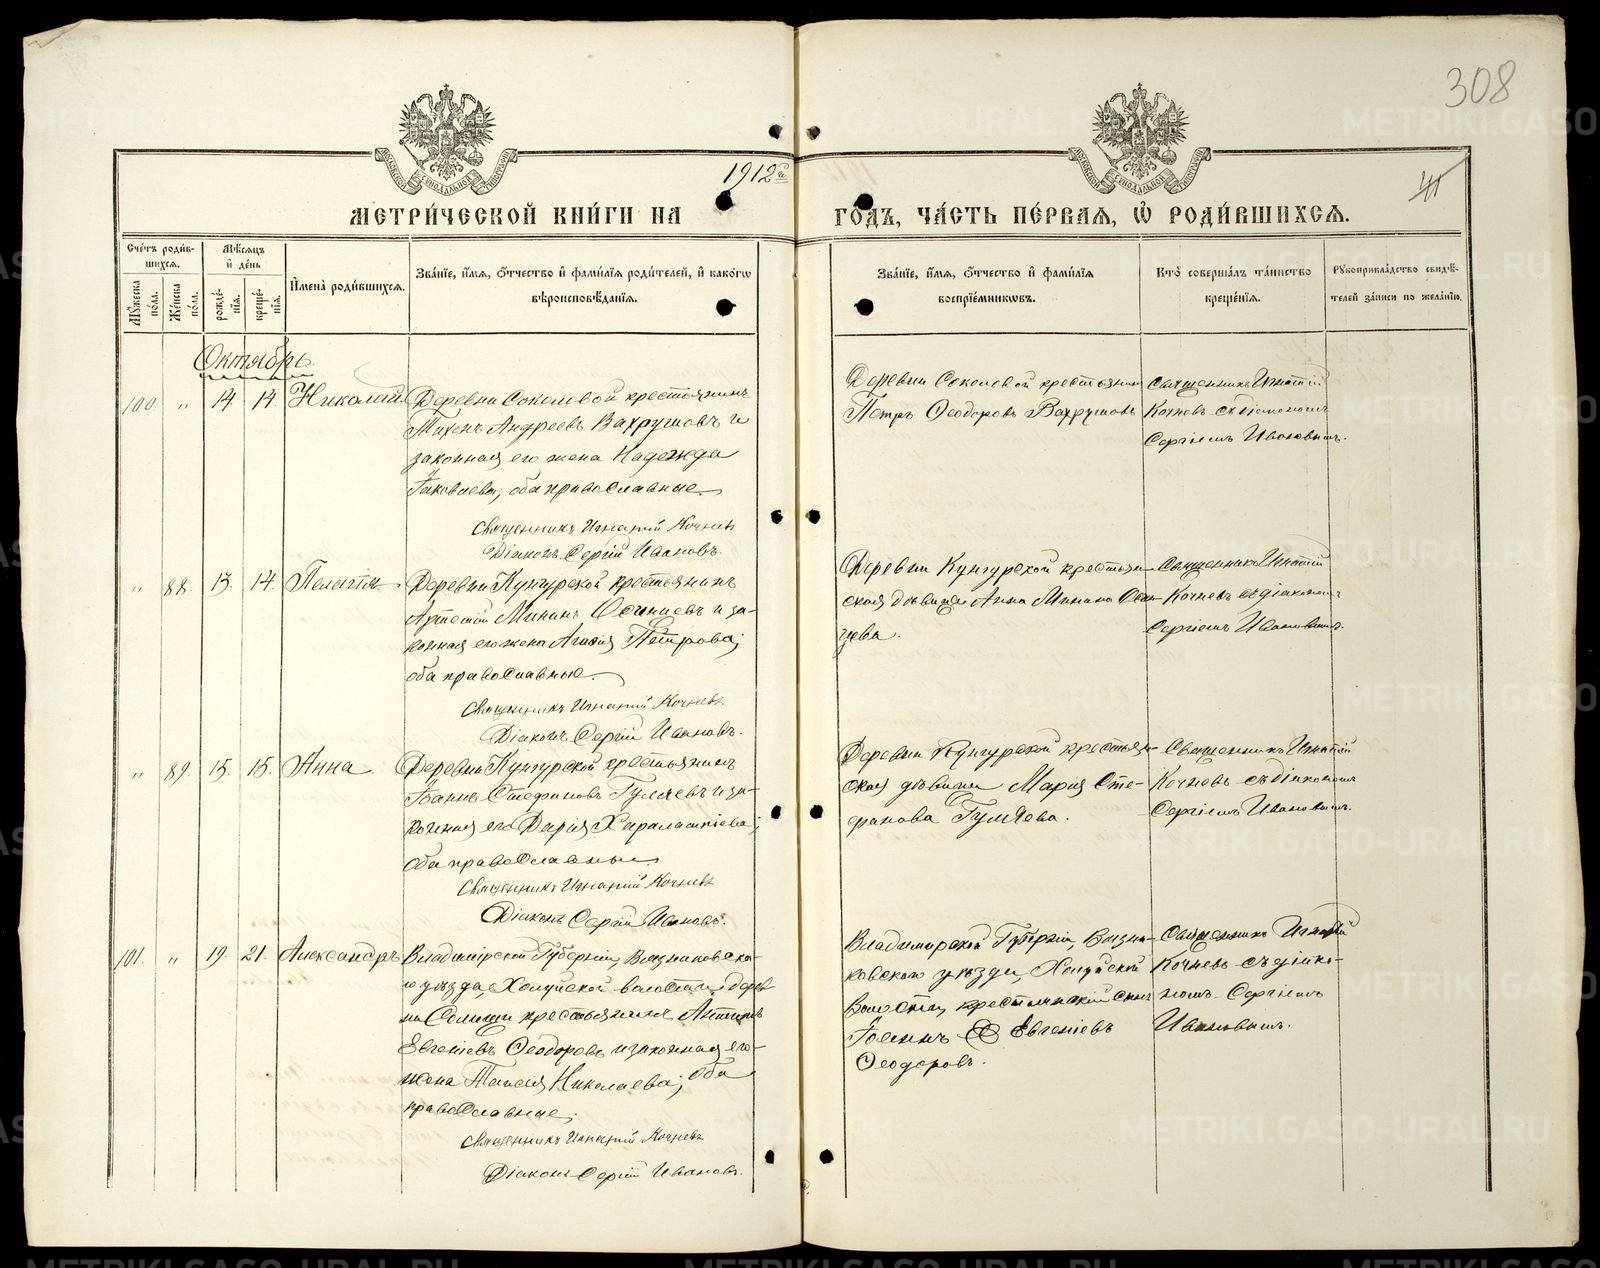 308
1912й
41
МЕТРИ́ЧЕСКОЙ КНИ́ГИ НА ГО́ДЪ, ЧА́СТЬ ПЕ́РВАЯ, Ѡ РОДИ́ВШИХСЯ.
Сче́тъ роди́вшихся.
Му́жеска по́ла.
Же́нска по́ла.
Мѣ́сяцъ и де́нь
рожде́нія.
креще́нія.
И҆мена̀ роди́вшихся.
Зва́ніе, и҆́мя, о҆́тчество и҆ фами́лія роди́телей, и҆ како́гѡ
вѣроисповѣ́данія.
Зва́ніе, и҆́мя, о҆́тчество и҆ фами́лія
воспрїе́мникѡвъ.
Кто̀ соверша́лъ та́инство
креще́нія.
Рꙋкоприкла́дство свидѣ́-
телей за́писи по жела́нію.
Октябрь
100. " 14. 14. Николай.
Деревни Соколовой крестьянинъ
Тихонъ Андреевъ Вахрушовъ и
законная его жена Надежда
Іаковлева; оба православные.
Священникъ Игнатій Кочневъ
Діаконъ Сергій Ивановъ.
Деревни Соколовой крестьянинъ
Петръ Ѳеодоровъ Вахрушовъ
Священникъ Игнатій
Кочневъ съ діакономъ
Сергіемъ Ивановымъ.
" 88. 13. 14. Пелагія
Деревни Кунгурской крестьянинъ
Мининъ и за-
конная его жена Петрова;
оба православные.
Священникъ Игнатій Кочневъ
Діаконъ Сергій Ивановъ.
Деревни Кунгурской крестьян-
ская дѣвица Анна Минина
Священникъ Игнатій
Кочневъ съ діакономъ
Сергіемъ Ивановымъ.
" 89. 15. 15. Анна
Деревни Кунгурской крестьянинъ
Іоаннъ Стефановъ Гуляевъ и за-
конная его Дарія Харалампіева;
оба православные.
Священникъ Игнатій Кочневъ
Діаконъ Сергій Ивановъ.
Деревни Кунгурской крестьян-
ская дѣвица Марія Сте-
фанова Гуляева.
Священникъ Игнатій
Кочневъ съ діакономъ
Сергіемъ Ивановымъ.
101. " 19. 21. Александръ
Владимірской Губерніи, Вязниковска-
го уѣзда, Холуйской волости дерев
ни крестьянинъ
Евгеніевъ Ѳеодоровъ и законная его
жена Таисія Николаева; оба
православные.
Священникъ Игнатій Кочневъ
Діаконъ Сергій Ивановъ.
Владимірской Губерніи, Вязни-
ковскаго уѣзда, Холуйской
волости, крестьянскій сынъ
Іоаннъ Евгеніевъ
Ѳеодоровъ.
Священникъ Игнатій
Кочневъ съ діако-
номъ Сергіемъ
Ивановымъ.
METRIKI.GASO-URAL.RU